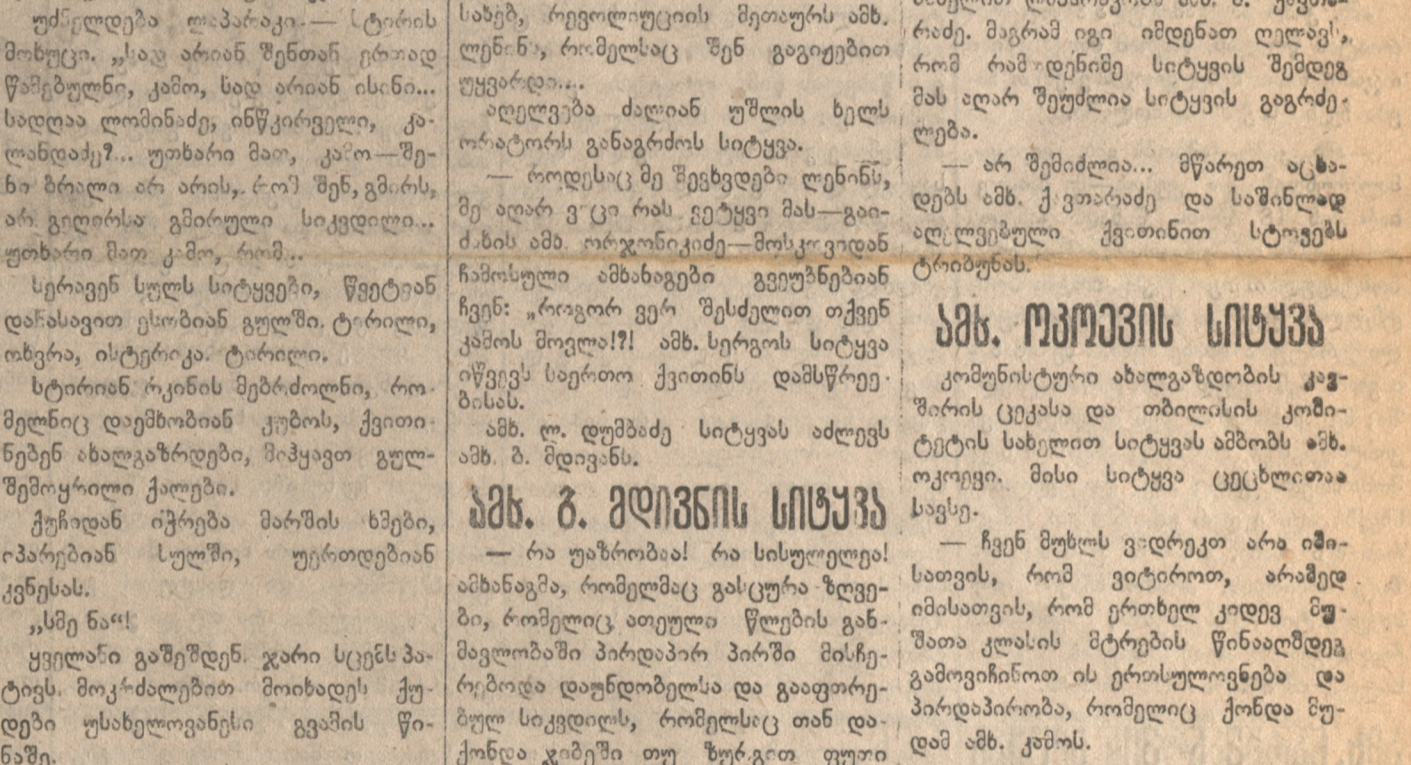 უძნელდება ლაპარაკი.— სტირის
მოხუცი. „სად არიან შენთან ერთად
წამებულნი, კამო, სად არიან ისინი...
სადღაა ლომინაძე, ინწკირველი, კა-
ლანდაძე?... უთხარი მათ, კამო—შე-
ნი ბრალი არ არის, რომ შენ, გმირს,
არ გეღირსა გმირული სიკვდილი...
უთხარი მათ კამო, რომ...
სერავენ სულს სიტყვები, წვეტიან
დანასავით ესობიან გულში. ტირილი,
ოხვრა, ისტერიკა. ტირილი.
სტირიან რკინის მებრძოლნი, რო-
მელნიც დაემხობიან კუბოს, ქვითი-
ნებენ ახალგაზრდები, მიჰყავთ გულ-
შემოყრილი ქალები.
ქუჩიდან იჭრება მარშის ხმები,
იპარებიან სულში, უერთდებიან
კვნესას.
„სმე ნა“!
ყველანი გაშეშდენ. ჯარი სცემს პა-
ტივს. მოკრძალებით მოიხადეს ქუ-
დები უსახელოვანესი გვამის წი-
ნაშე.
სახებ, რევოლიუციის მეთაურს ამხ.
ლენინს, რომელსაც შენ გაგიჟებით
უყვარდი....
აღელვება ძალიან უშლის ხელს
ორატორს განაგრძოს სიტყვა.
— როდესაც მე შევხვდები ლენინს,
მე აღარ ვიცი რას ვეტყვი მას—გაი-
ძახის ამხ. ორჯონიკიძე—მოსკოვიდან
ჩამოსული ამხანაგები გვეუბნებიან
ჩვენ: „როგორ ვერ შესძელით თქვენ
კამოს მოვლა!?! ამხ. სერგოს სიტყვა
იწვევს საერთო ქვითინს დამსწრეე-
ბისას.
ამხ. ლ. დუმბაძე სიტყვას აძლევს
ამხ. ბ. მდივანს.
ამხ. ბ. მდივნის სიტყვა
— რა უაზრობაა! რა სისულელეა!
ამხანაგმა, რომელმაც გასცურა ზღვე-
ბი, რომელიც ათეული წლების გან-
მავლობაში პირდაპირ პირში მისჩე-
რებოდა დაუნდობელსა და გააფთრე-
ბულ სიკვდილს, რომელსაც თან და-
ქონდა ჯიბეში თუ ზურგით ფუთი
რაძე. მაგრამ იგი იმდენათ ღელავს,
რომ რამოდენიმე სიტყვის შემდეგ
მას აღარ შეუძლია სიტყვის გაგრძე-
ლება.
— არ შემიძლია... მწარეთ აცხა-
დებს ამხ. ქავთარაძე და საშინლად
აღელვებული ქვითინით სტოვებს
ტრიბუნას.
ამხ. ოკოევის სიტყვა
კომუნისტური ახალგაზდობის კავ-
შირის ცეკასა და თბილისის კომი-
ტეტის სახელით სიტყვას ამბობს ამხ.
ოკოევი. მისი სიტყვა ცეცხლითაა
სავსე.
— ჩვენ მუხლს ვიდრეკთ არა იმი-
სათვის, რომ ვიტიროთ, არამედ
იმისათვის, რომ ერთხელ კიდევ მუ-
შათა კლასის მტრების წინააღმდეგ
გამოვიჩინოთ ის ერთსულოვნება და
პირდაპირობა, რომელიც ქონდა მუ-
დამ ამხ. კამოს.